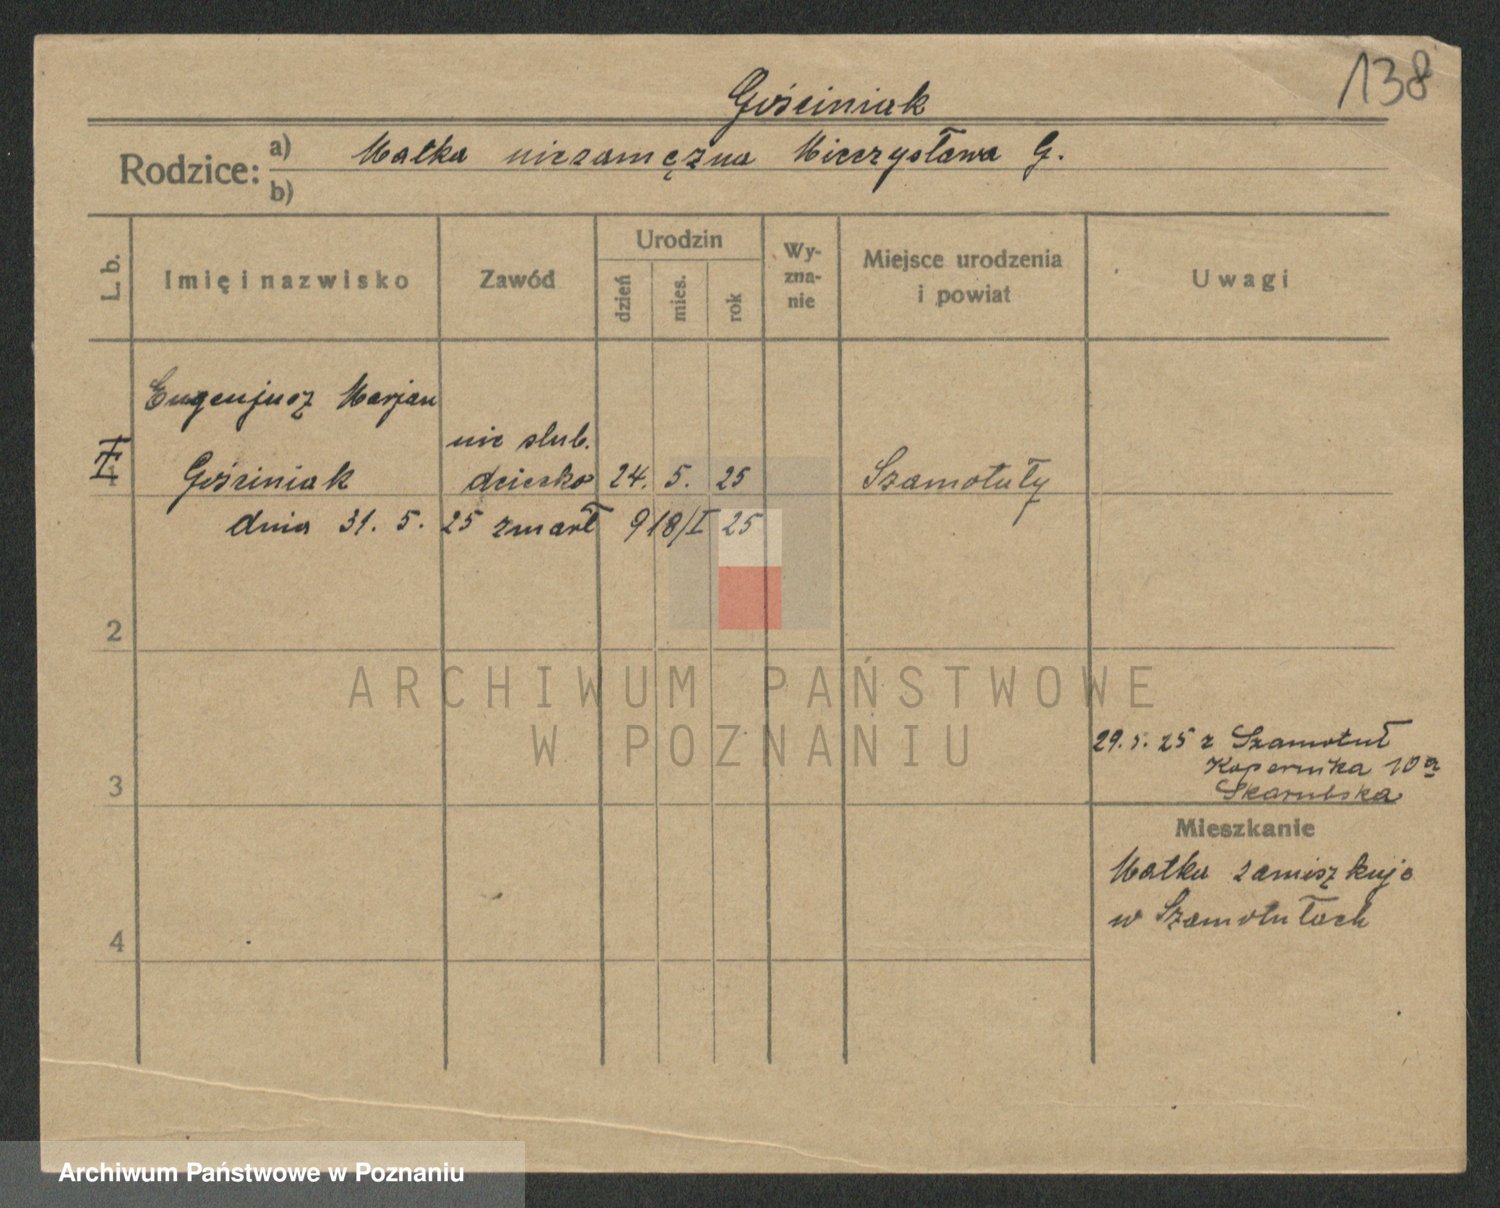 138
Gościniak
Rodzice:
a) Matka niezamężna Mieczysława G.
b)
L. b.
Imię i nazwisko
Zawód
Urodzin
dzień
mies.
rok
Wy-
zna-
nie
Miejsce urodzenia
i powiat
Uwagi
Eugenjusz Marjan
nie slub.
Gościniak dziecko 24. 5. 25 Szamotuły
dnia 31. 5. 25 zmarł 918/I 25
2
ARCHIWUM PAŃSTWOWE
W POZNANIU
29. 5. 25 z Szamotuł
Kopernika 10a
3
Mieszkanie
Matka zamiszkuje
w Szamotułach
4
Archiwum Państwowe w Poznaniu